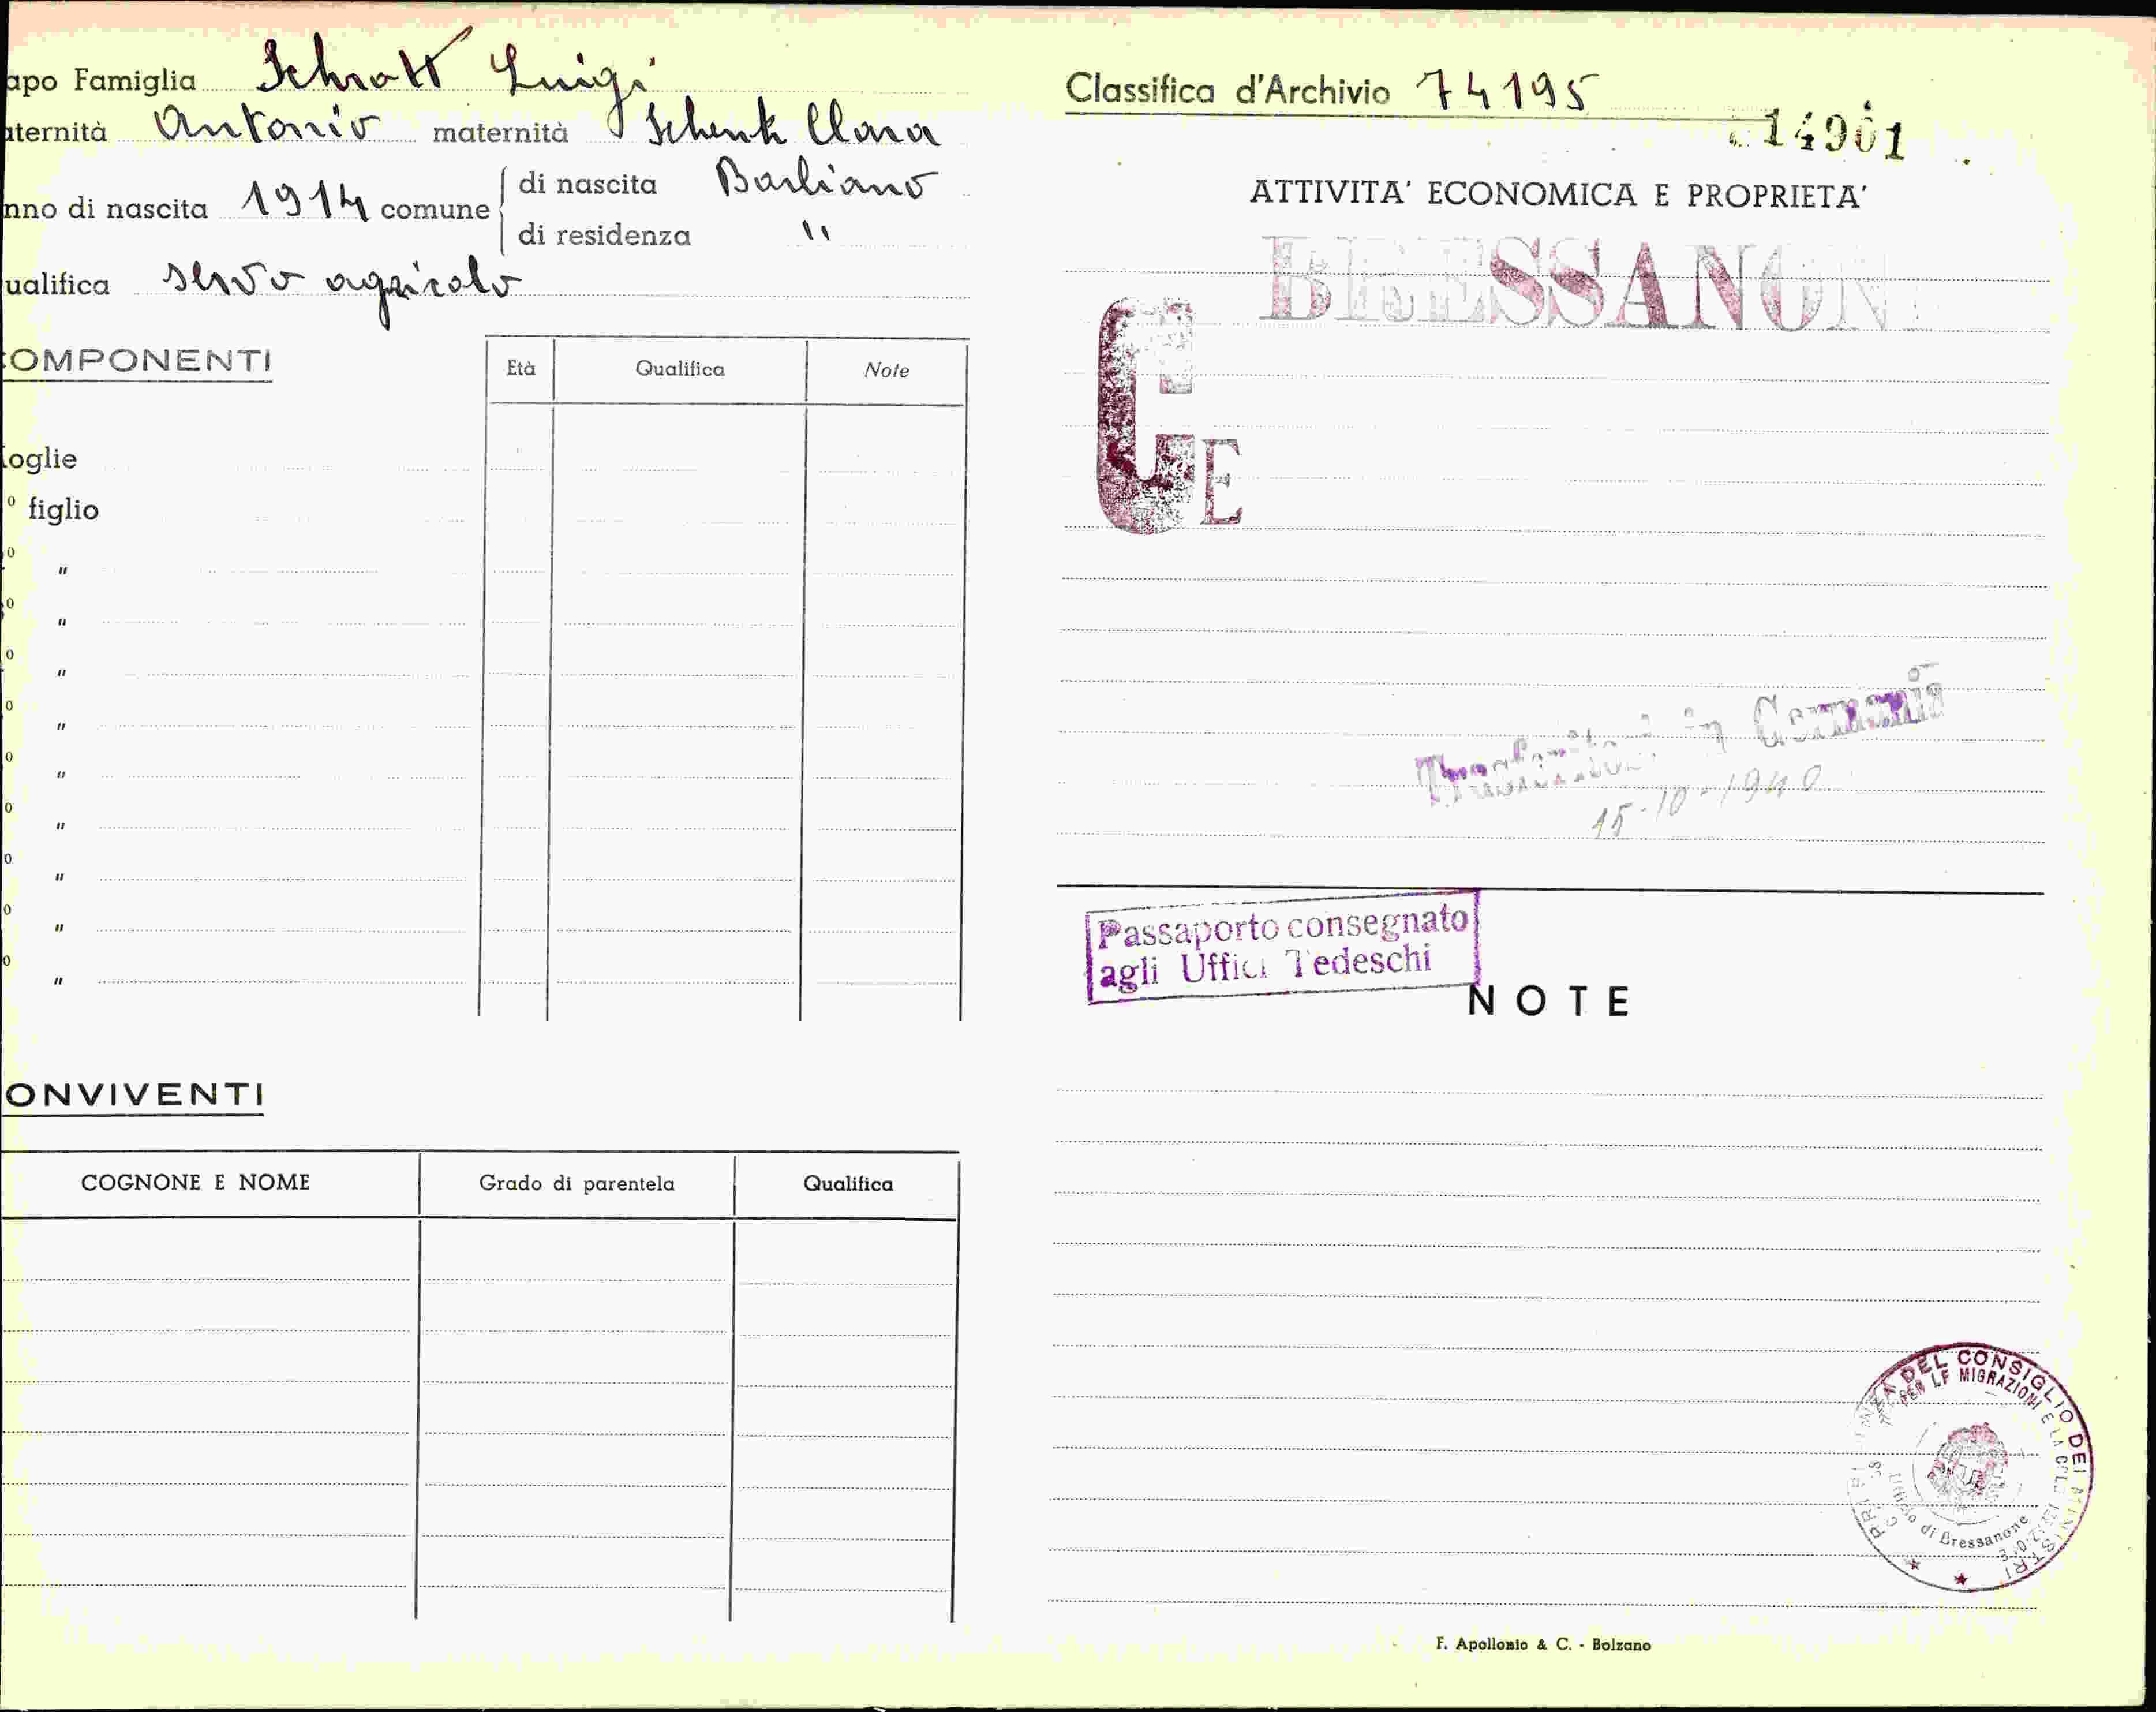 apo Famiglia Schrott Luigi
aternità Antonio maternità Schenk Clara
nno di nascita 1914 comune di nascita Barbiano
di residenza "
ualifica servo agricolo
OMPONENTI
Età Qualifica Note
oglie
o figlio
o "
o "
o "
o "
o "
o "
o "
o "
o "
ONVIVENTI
COGNONE E NOME Grado di parentela Qualifica
Classifica d'Archivio 74195
14901
ATTIVITA' ECONOMICA E PROPRIETA'
BRESSANON
C E
Trasferitosi in Germania
15-10-1940
Passaporto consegnato
agli Uffici Tedeschi
NOTE
DEL CONSIGLIO DEI MINISTRI
PER LE MIGRAZIONI E LA
Ufficio di Bressanone
F. Apollonio & C. - Bolzano